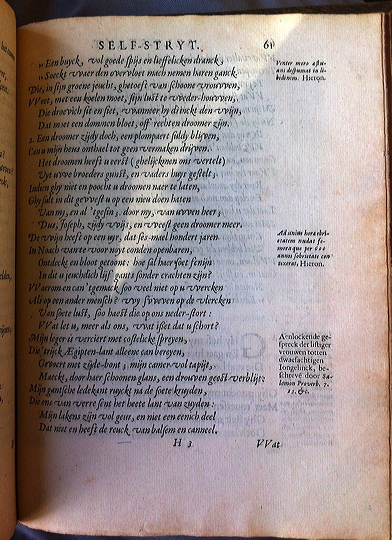 SELF-STRYT. 61
„ Een buyck, vol goede spijs en lieffelicken dranck,
„ Soeckt vvaer den overvloet mach nemen haren ganck.
Die, in sijn groene jeucht, ghetoeft van schoone vrouvven,
VVeet, met een koelen moet, sijn lust te vveder-houvven,
Die droevich sit en siet, vvanneer hy drinckt den vvijn,
Dat is et den dommen bloet, oft rechten droomer zijn.
Een droomer zijdy doch, een plompaert suldy blijven,
Can u mijn heus onthael tot geen vermaken drijven.
Het droomen heeft u eerst (ghelijckmen ons vertelt)
Uyt uvve broeders gunst, en vaders huys gestelt;
Indien ghy niet en poocht u droomen naer te laten,
Ghy sult in dit gevvest u op een nieu doen haten
Van my, en al 'tgesin; door my, van uvven heer;
Dus, Joseph, zijdy vvijs, en vveest geen droomer meer.
De vvijn heeft op een uyr, dat ses-mael hondert jaren
In Noach vvaren voor noyt conden openbaren,
Ontdeckt en bloot getoont: hoe sal hier soet senijn
In die u jeuchdich lijf gants sonder crachten zijn?
VVaerom en can 'tgemack soo veel niet op u vvercken
Als op een ander mensch? vvy svveven op de vlercken
Van soete lust, soo haest die op ons neder-stort:
VVat let u, meer als ons, vvat isset dat u schort?
Mijn leger is verciert met costelicke spreyen,
Die 'trijck Ægipten-lant alleene can bereyen,
Gevoert met zijde-bont; mijn camer vol tapijt,
Maeckt, door haer schoonen glans, een droeven geest verblijt:
Mijn gantsche ledekant ruyckt na de soete kruyden,
Die ons van verre sent het heete lant van zuyden:
Mijn lakens zijn vol geur, en niet een eenich deel
Dat niet en heeft de reuck van balsem en canneel.
H 3 VVat
Venter mero æstuans
despumat in libidinem.
Hieron.
Ad unius horæ ebrietatem
nudat femora
quæ per 600
annos sobrietate contexerat,
Hieron.
Aenlockende gespreck
der listiger
vrouwen totten
dwaefachtigen
Iongelinck, beschreve
door Salomon
Proverb. 7.